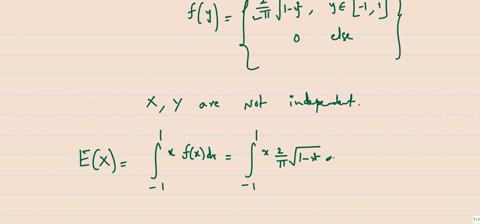 f(y) = { 2/π √1-y², y ∈ [-1, 1]
0 else }
X, Y are Not independent.
E(X) = ∫₋₁¹ x f(x) dx = ∫₋₁¹ x 2/π √1-x²
1/1